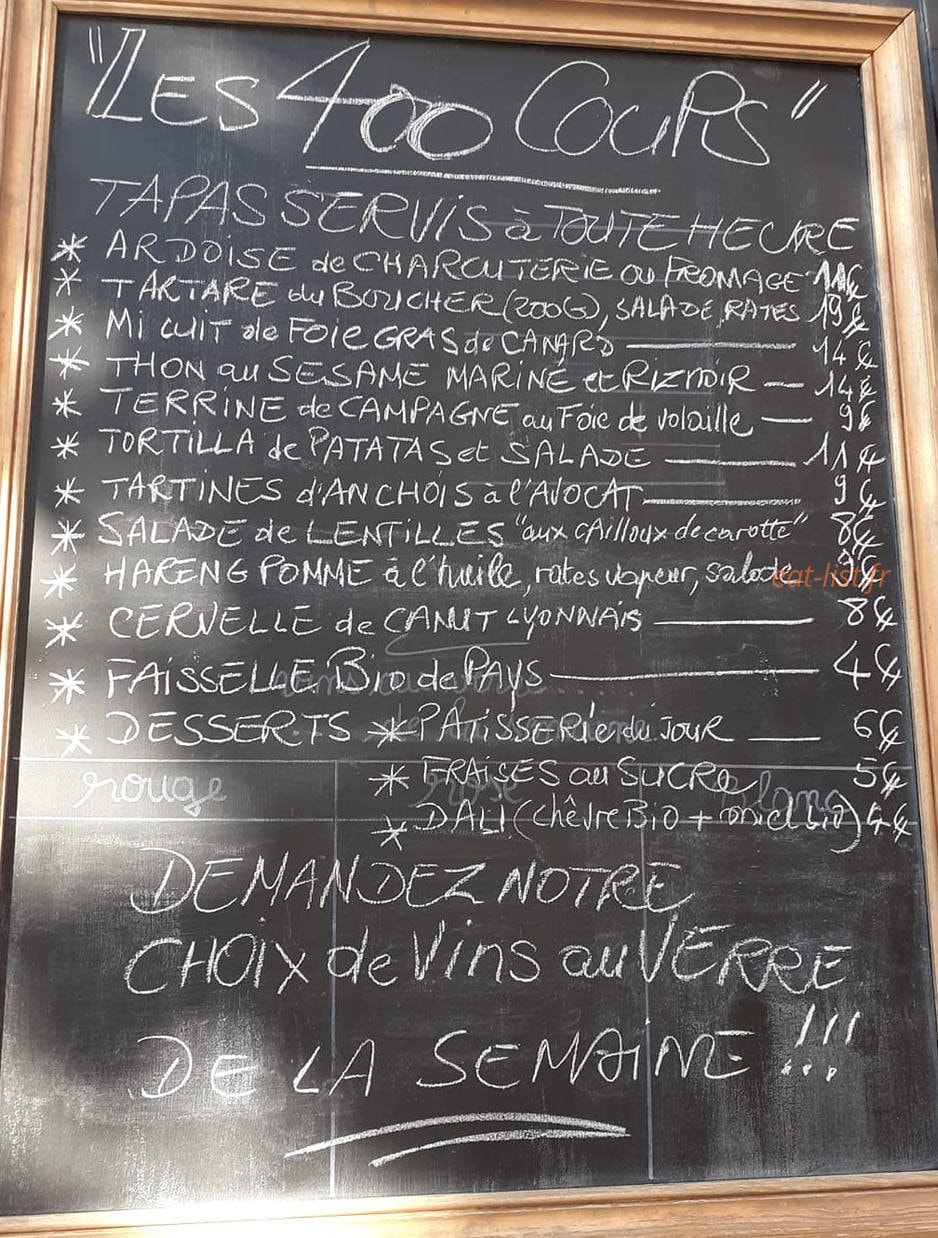 "LES 400 COUPS"
TAPAS SERVIS à TOUTE HEURE
* ARDOISE de CHARCUTERIE ou FROMAGE
* TARTARE du BOUCHER (200G), SALADE, RATES 19€
* Mi cuit de FOIE GRAS de CANARD — 14€
* THON au SESAME MARINE et RIZ NOIR — 14€
* TERRINE de CAMPAGNE au Foie de volaille — 9€
* TORTILLA de PATATAS et SALADE — 11€
* TARTINES d'ANCHOIS à l'AVOCAT — 9€
* SALADE de LENTILLES "aux cAilloux de carotte" 8€
* HARENG POMME à l'huile, rates vapeur, salade 9€
eat-list.fr
* CERVELLE de CANUT LYONNAIS — 8€
* FAISSELLE Bio de PAys — 4€
* DESSERTS * PATISSERie du JOUR — 6€
rouge * FRAISES au SUCRe 5€
* DALI (chêvre Bio + miel bio)
DEMANDEZ NOTRE
CHOIX de Vins au VERRE
DE LA SEMAINE !!!